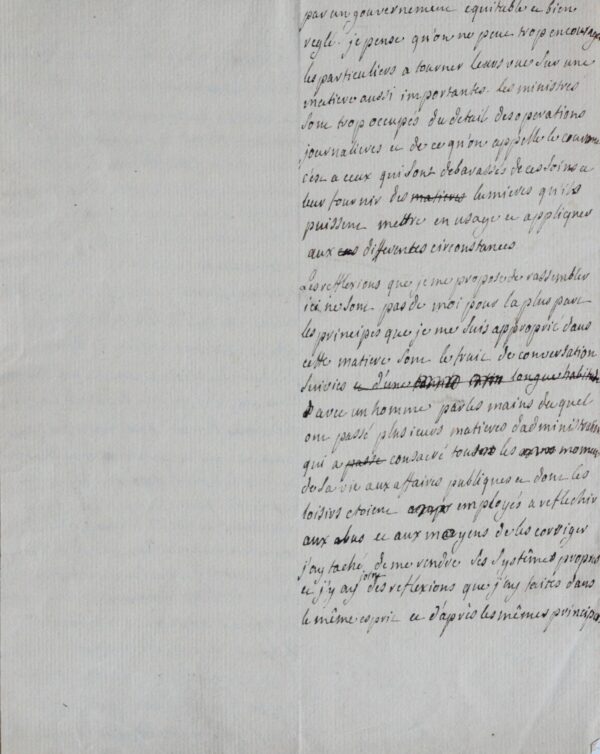 par un gouvernement equitable et bien
reglé. je pense qu'on ne peut trop encourager
les particuliers a tourner leurs vues sur une
matiere aussi importantes. les ministres
sont trop occupés du detail des operations
journalieres et de ce qu'on appelle le courant
c'est a ceux qui sont debarassés de ces soins a
leur fournir des matieres lumieres qu'ils
puissent mettre en usage et appliquer
aux differentes circonstances
Les reflexions que je me propose de rassembler
ici ne sont pas de moi pour la plus part
les principes que je me suis approprié dans
cette matiere sont le fruit de conversation
suivies et d'une longue habitude
avec un homme par les mains duquel
ont passé plusieurs matieres d'administration
qui a passé consacré tous les momens
de sa vie aux affaires publiques et dont les
loisirs etoient employés a reflechir
aux abus et aux moyens de les corriger
j'ay taché de me rendre ses systêmes propres
et j'y ay joint des reflexions que j'ay faites dans
le même esprit et d'après les mêmes principes